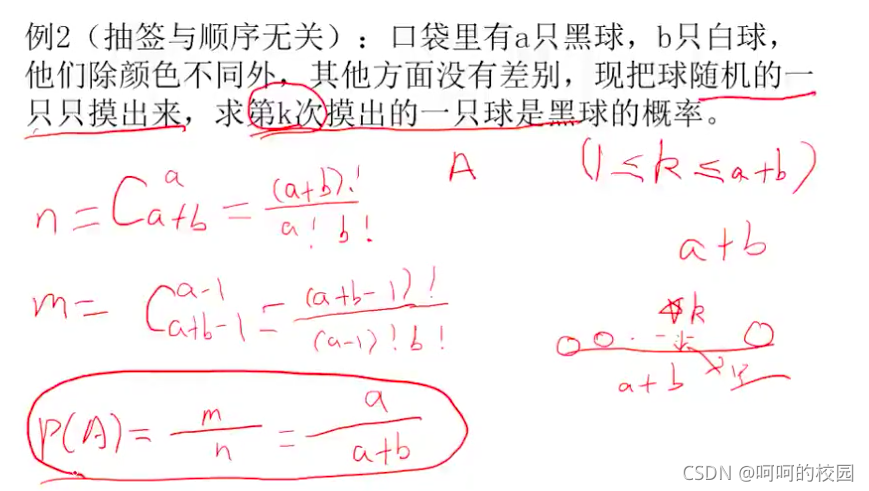 例2（抽签与顺序无关）：口袋里有a只黑球，b只白球，
他们除颜色不同外，其他方面没有差别，现把球随机的一
只只摸出来，求第k次摸出的一只球是黑球的概率。
A (1≤k≤a+b)
n = C_{a+b}^{a} = (a+b)! / a! b!
a+b
m = C_{a+b-1}^{a-1} = (a+b-1)! / (a-1)! b!
k
a+b
P(A) = m/n = a/(a+b)
CSDN @呵呵的校园